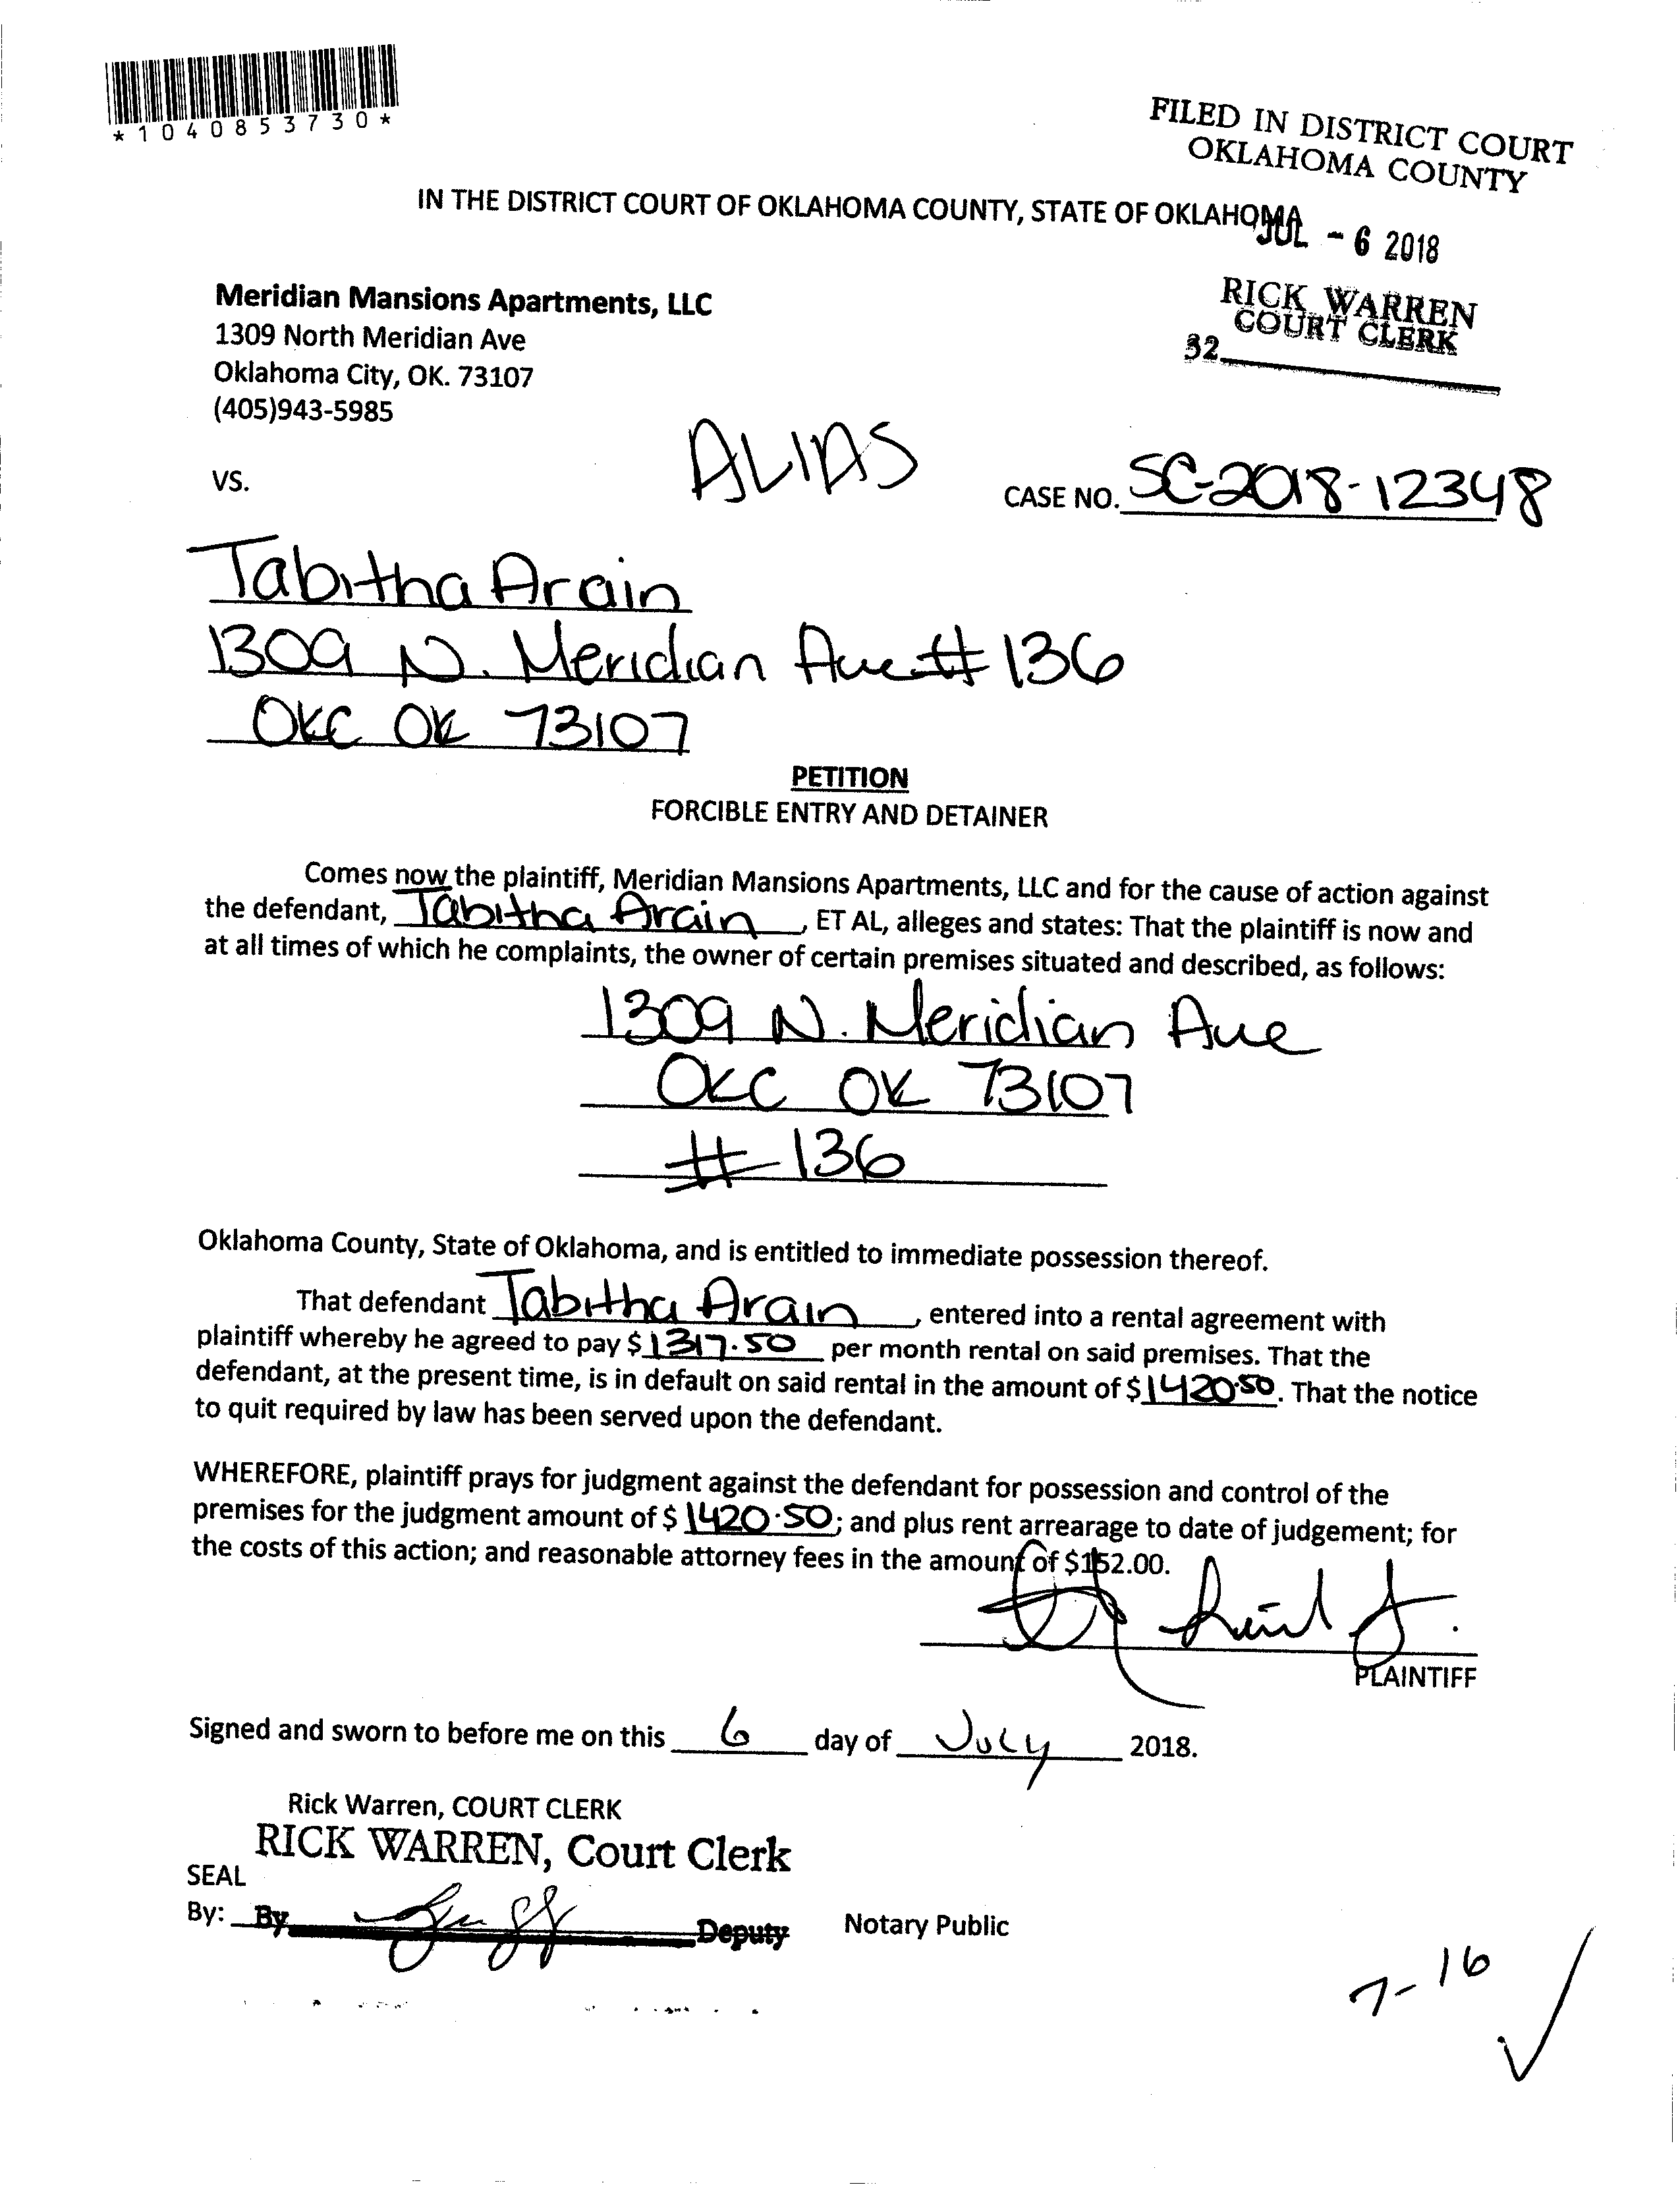 *1040853730*
FILED IN DISTRICT COURT
OKLAHOMA COUNTY
IN THE DISTRICT COURT OF OKLAHOMA COUNTY, STATE OF OKLAHOMA
JUL - 6 2018
RICK WARREN
COURT CLERK
32
Meridian Mansions Apartments, LLC
1309 North Meridian Ave
Oklahoma City, OK. 73107
(405)943-5985
ALIAS
VS.
CASE NO. SC-2018-12348
Tabitha Arain
1309 N. Meridian Ave # 136
OKC OK 73107
PETITION
FORCIBLE ENTRY AND DETAINER
Comes now the plaintiff, Meridian Mansions Apartments, LLC and for the cause of action against
the defendant, Tabitha Arain, ET AL, alleges and states: That the plaintiff is now and
at all times of which he complaints, the owner of certain premises situated and described, as follows:
1309 N. Meridian Ave
OKC OK 73107
# 136
Oklahoma County, State of Oklahoma, and is entitled to immediate possession thereof.
That defendant Tabitha Arain, entered into a rental agreement with
plaintiff whereby he agreed to pay $ 1317.50 per month rental on said premises. That the
defendant, at the present time, is in default on said rental in the amount of $ 1420.50. That the notice
to quit required by law has been served upon the defendant.
WHEREFORE, plaintiff prays for judgment against the defendant for possession and control of the
premises for the judgment amount of $ 1420.50; and plus rent arrearage to date of judgement; for
the costs of this action; and reasonable attorney fees in the amount of $152.00.
PLAINTIFF
Signed and sworn to before me on this 6 day of July 2018.
Rick Warren, COURT CLERK
RICK WARREN, Court Clerk
SEAL
By: By Deputy Notary Public
7-16